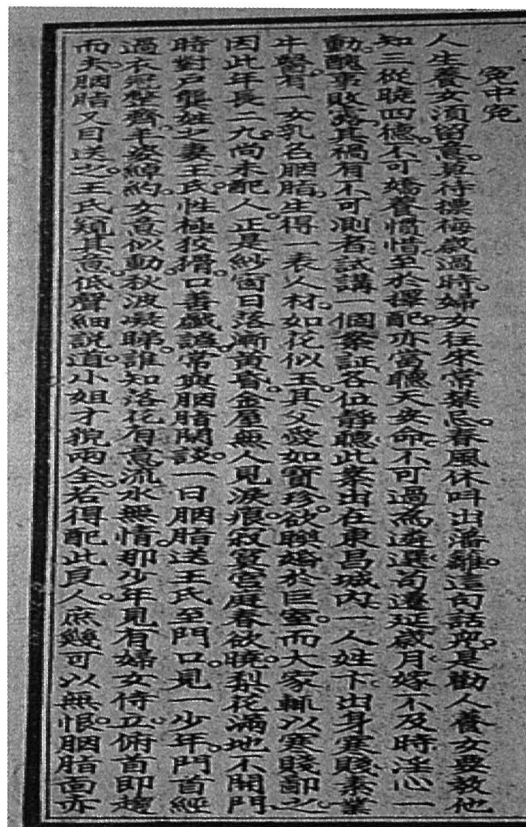 冤中冤
人生養女須留意莫待摽梅歲過時婦女往來常禁忌春風休叫出藩籬這句話兒是勸人養女要教他
知三從曉四德不可嬌養慣惜至於擇配亦當聽天安命不可過為遴選苟遷延歲月嫁不及時淫心一
動醜事敗露其禍有不可測者試講一個案証各位靜聽此案出在東昌城內一人姓卞出身寒賤素業
牛醫有一女乳名胭脂生得一表人材如花似玉其父愛如寶珍欲聯婚於巨室而大家輒以寒賤鄙之
因此年長二九尚未配人正是紗窗日落漸黃昏金屋無人見淚痕寂寞空庭春欲晚梨花滿地不開門
時對戶龔姓之妻王氏性極狡猾口善戲謔常與胭脂閒談一日胭脂送王氏至門口見一少年門首經
過衣冠整齊丰姿綽約女意似動秋波凝睇誰知落花有意流水無情那少年見有婦女侍立俯首即趨
而去胭脂又目送之王氏窺其意低聲細說道小姐才貌兩全若得配此良人庶幾可以無恨胭脂面亦